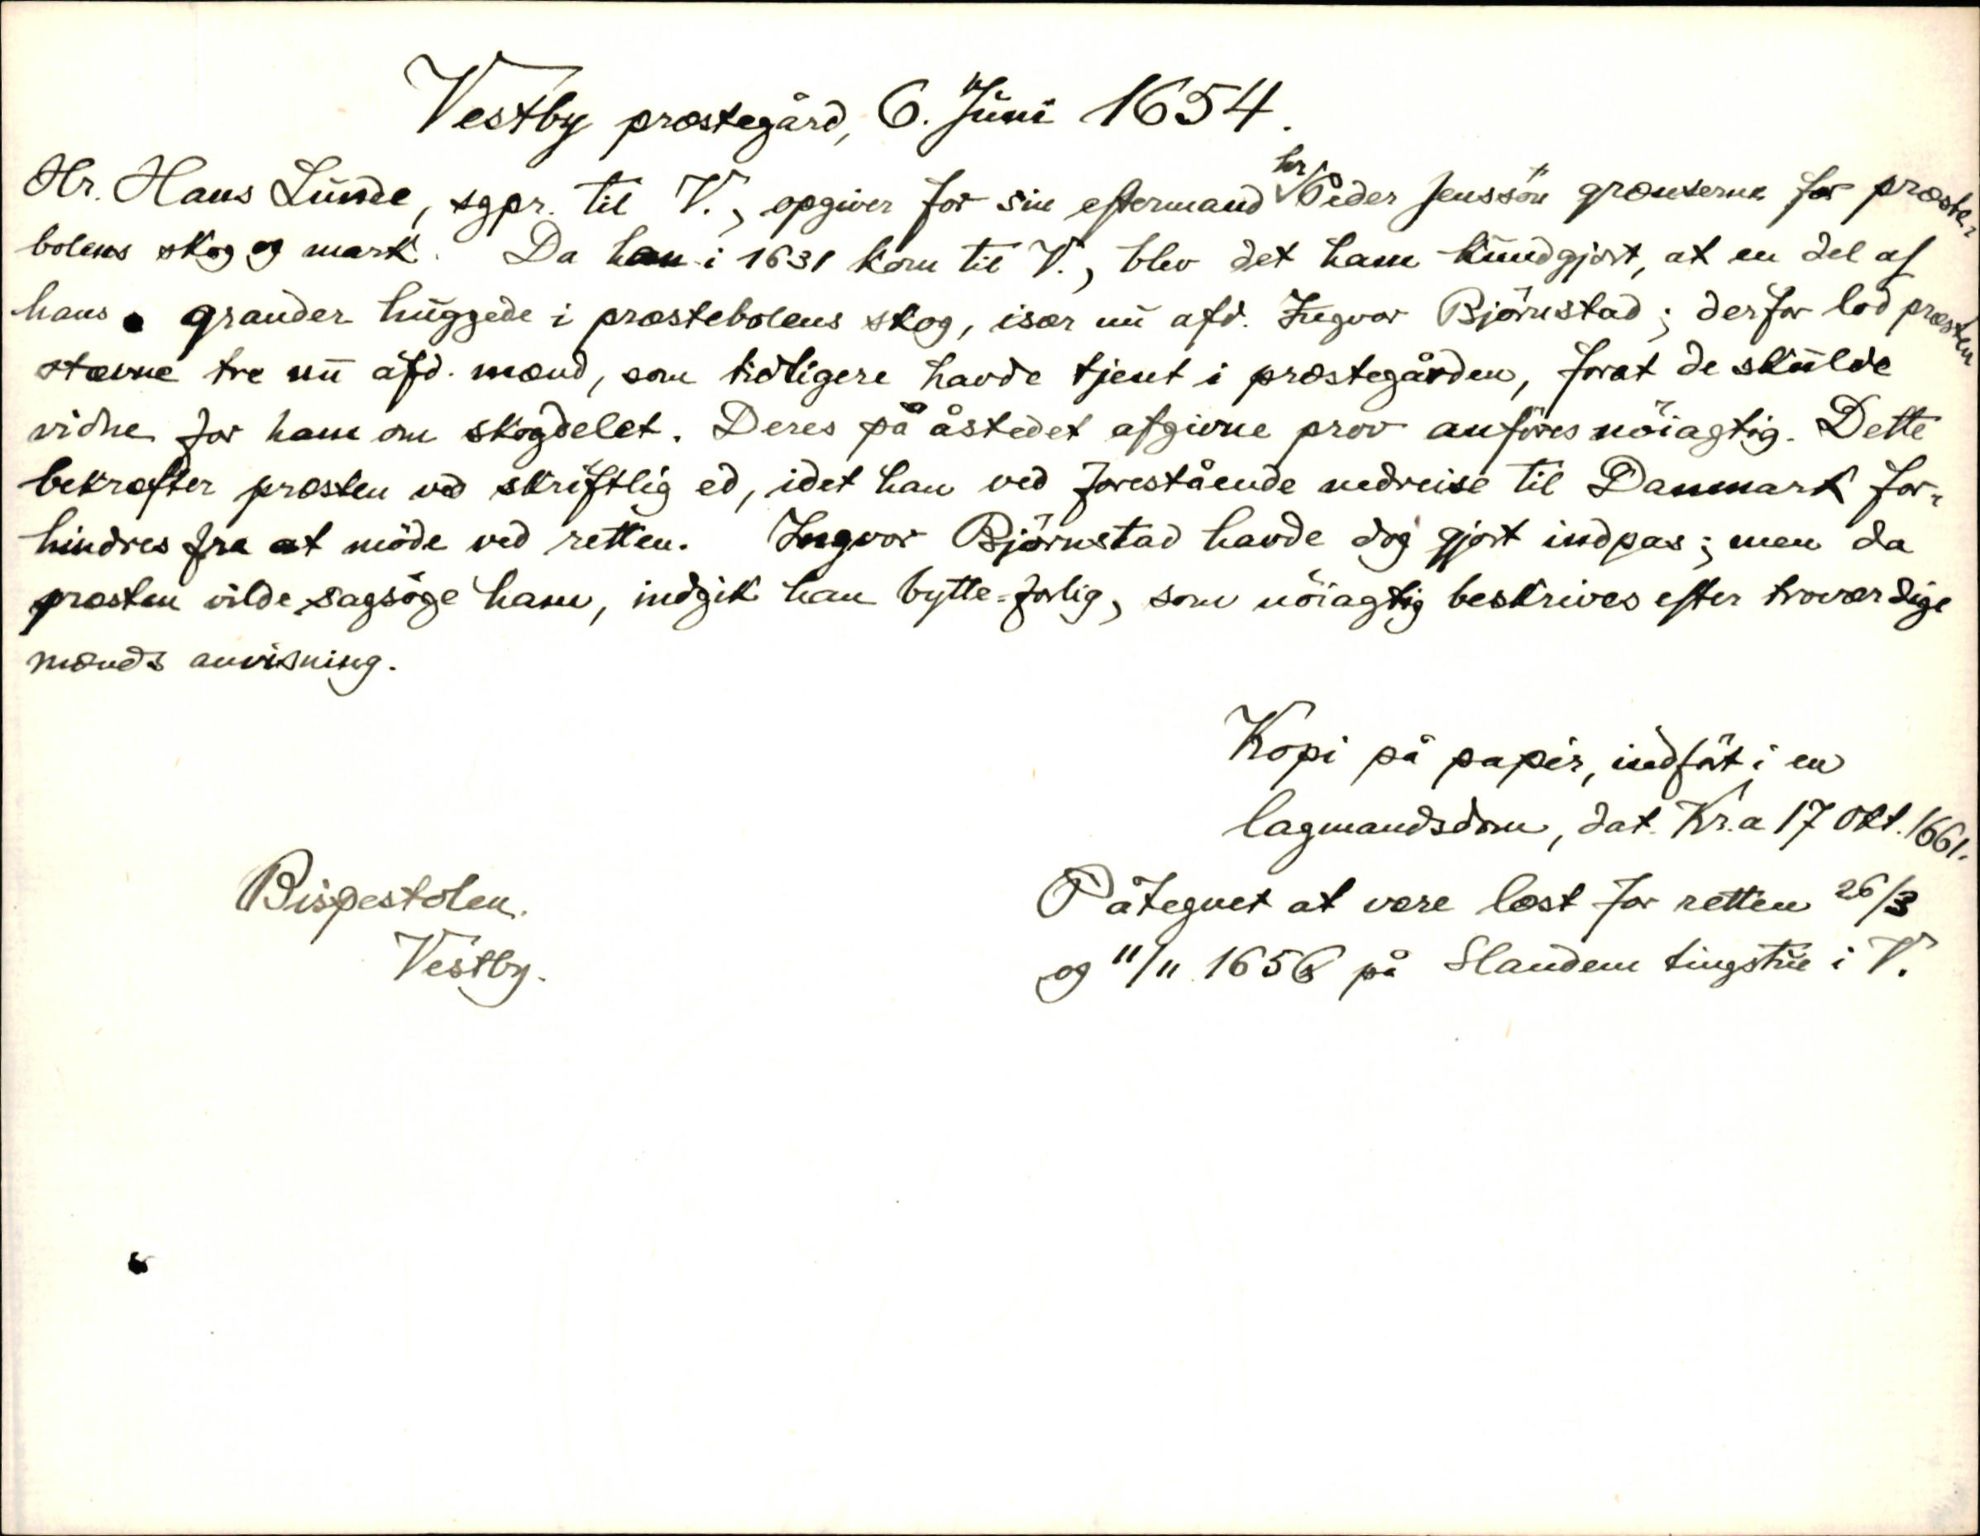 Vestby præstegård, 6. Juni 1654.
Hr. Hans Lunde, sgpr. til V., opgiver for sin eftermand hr Peder Jenssön grænserne for præste-
bolens skog og mark. Da han i 1631 kom til V., blev det ham kundgjort, at en del af
hans grander huggede i præstebolens skog, især nu afd. Ingvor Björnstad; derfor lod præsten
stævne tre nu afd. mænd, som tidligere havde tjent i præstegården, forat de skulde
vidne for ham om skogdelet. Deres på åstedet afgivne prov anföres nöiagtig. Dette
bekræfter præsten ved skriftlig ed, idet han ved forestående nedreise til Danmark for-
hindres fra at möde ved retten. Ingvor Björnstad havde dog gjort indpas; men da
præsten vilde sagsöge ham, indgik han bytte-forlig, som nöiagtig beskrives efter troværdige
mænds anvisning.
Kopi på papir, indfört i en
lagmandsdom, dat. Kr.a 17 Okt. 1661.
Bispestolen.
Vestby.
Påtegnet at være læst for retten 26/3
og 11/11 1656 på Slandem tingstue i V.